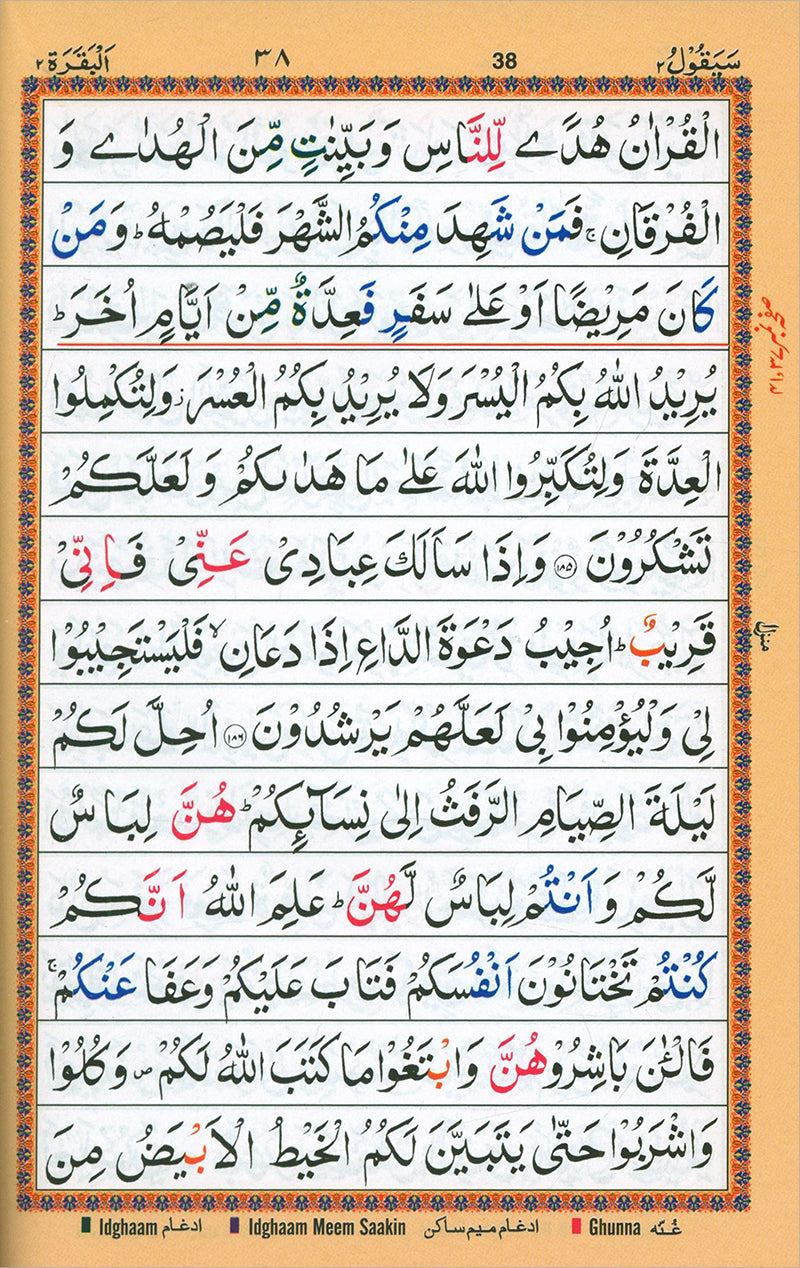 سَيَقُوْلُ ٢ 38 ٣٨ اَلْبَقَرَة ٢
الْقُرْاٰنُ هُدًى لِّلنَّاسِ وَبَيِّنٰتٍ مِّنَ الْهُدٰى وَ
الْفُرْقَانِ ۚ فَمَنْ شَهِدَ مِنْكُمُ الشَّهْرَ فَلْيَصُمْهُ ؕ وَمَنْ
كَانَ مَرِيْضًا اَوْ عَلٰى سَفَرٍ فَعِدَّةٌ مِّنْ اَيَّامٍ اُخَرَ ؕ
يُرِيْدُ اللّٰهُ بِكُمُ الْيُسْرَ وَلَا يُرِيْدُ بِكُمُ الْعُسْرَ ؗ وَلِتُكْمِلُوا
الْعِدَّةَ وَلِتُكَبِّرُوا اللّٰهَ عَلٰى مَا هَدٰىكُمْ وَ لَعَلَّكُمْ
تَشْكُرُوْنَ ﴿۱۸۵﴾ وَاِذَا سَاَلَكَ عِبَادِيْ عَنِّيْ فَاِنِّيْ
قَرِيْبٌ ؕ اُجِيْبُ دَعْوَةَ الدَّاعِ اِذَا دَعَانِ ۙ فَلْيَسْتَجِيْبُوْا
لِيْ وَلْيُؤْمِنُوْا بِيْ لَعَلَّهُمْ يَرْشُدُوْنَ ﴿۱۸۶﴾ اُحِلَّ لَكُمْ
لَيْلَةَ الصِّيَامِ الرَّفَثُ اِلٰى نِسَآئِكُمْ ؕ هُنَّ لِبَاسٌ
لَّكُمْ وَ اَنْتُمْ لِبَاسٌ لَّهُنَّ ؕ عَلِمَ اللّٰهُ اَنَّكُمْ
كُنْتُمْ تَخْتَانُوْنَ اَنْفُسَكُمْ فَتَابَ عَلَيْكُمْ وَعَفَا عَنْكُمْ ۚ
فَالْـٰٔنَ بَاشِرُوْهُنَّ وَابْتَغُوْا مَا كَتَبَ اللّٰهُ لَكُمْ ۪ وَكُلُوْا
وَاشْرَبُوْا حَتّٰى يَتَبَيَّنَ لَكُمُ الْخَيْطُ الْاَبْيَضُ مِنَ
منزل
Idghaam ادغام Idghaam Meem Saakin ادغام ميم ساكن Ghunna غُنّه